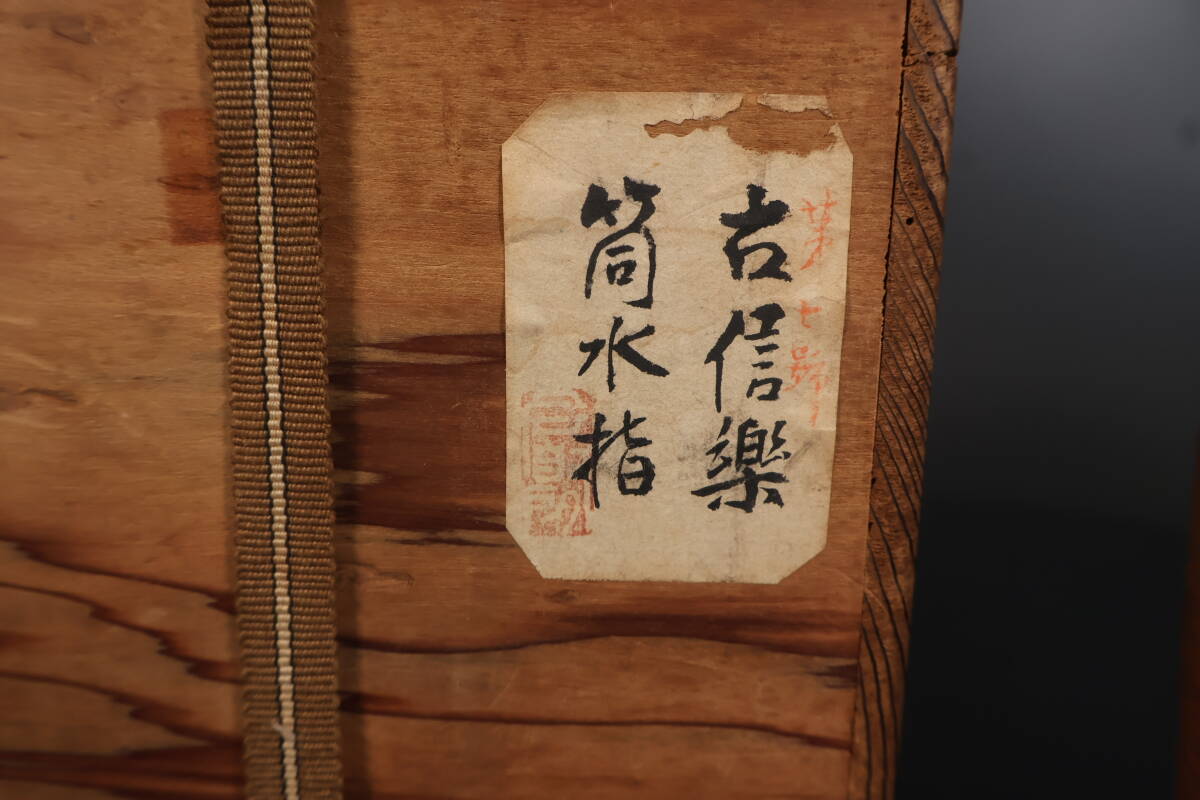 第七号
古信樂
筒水指